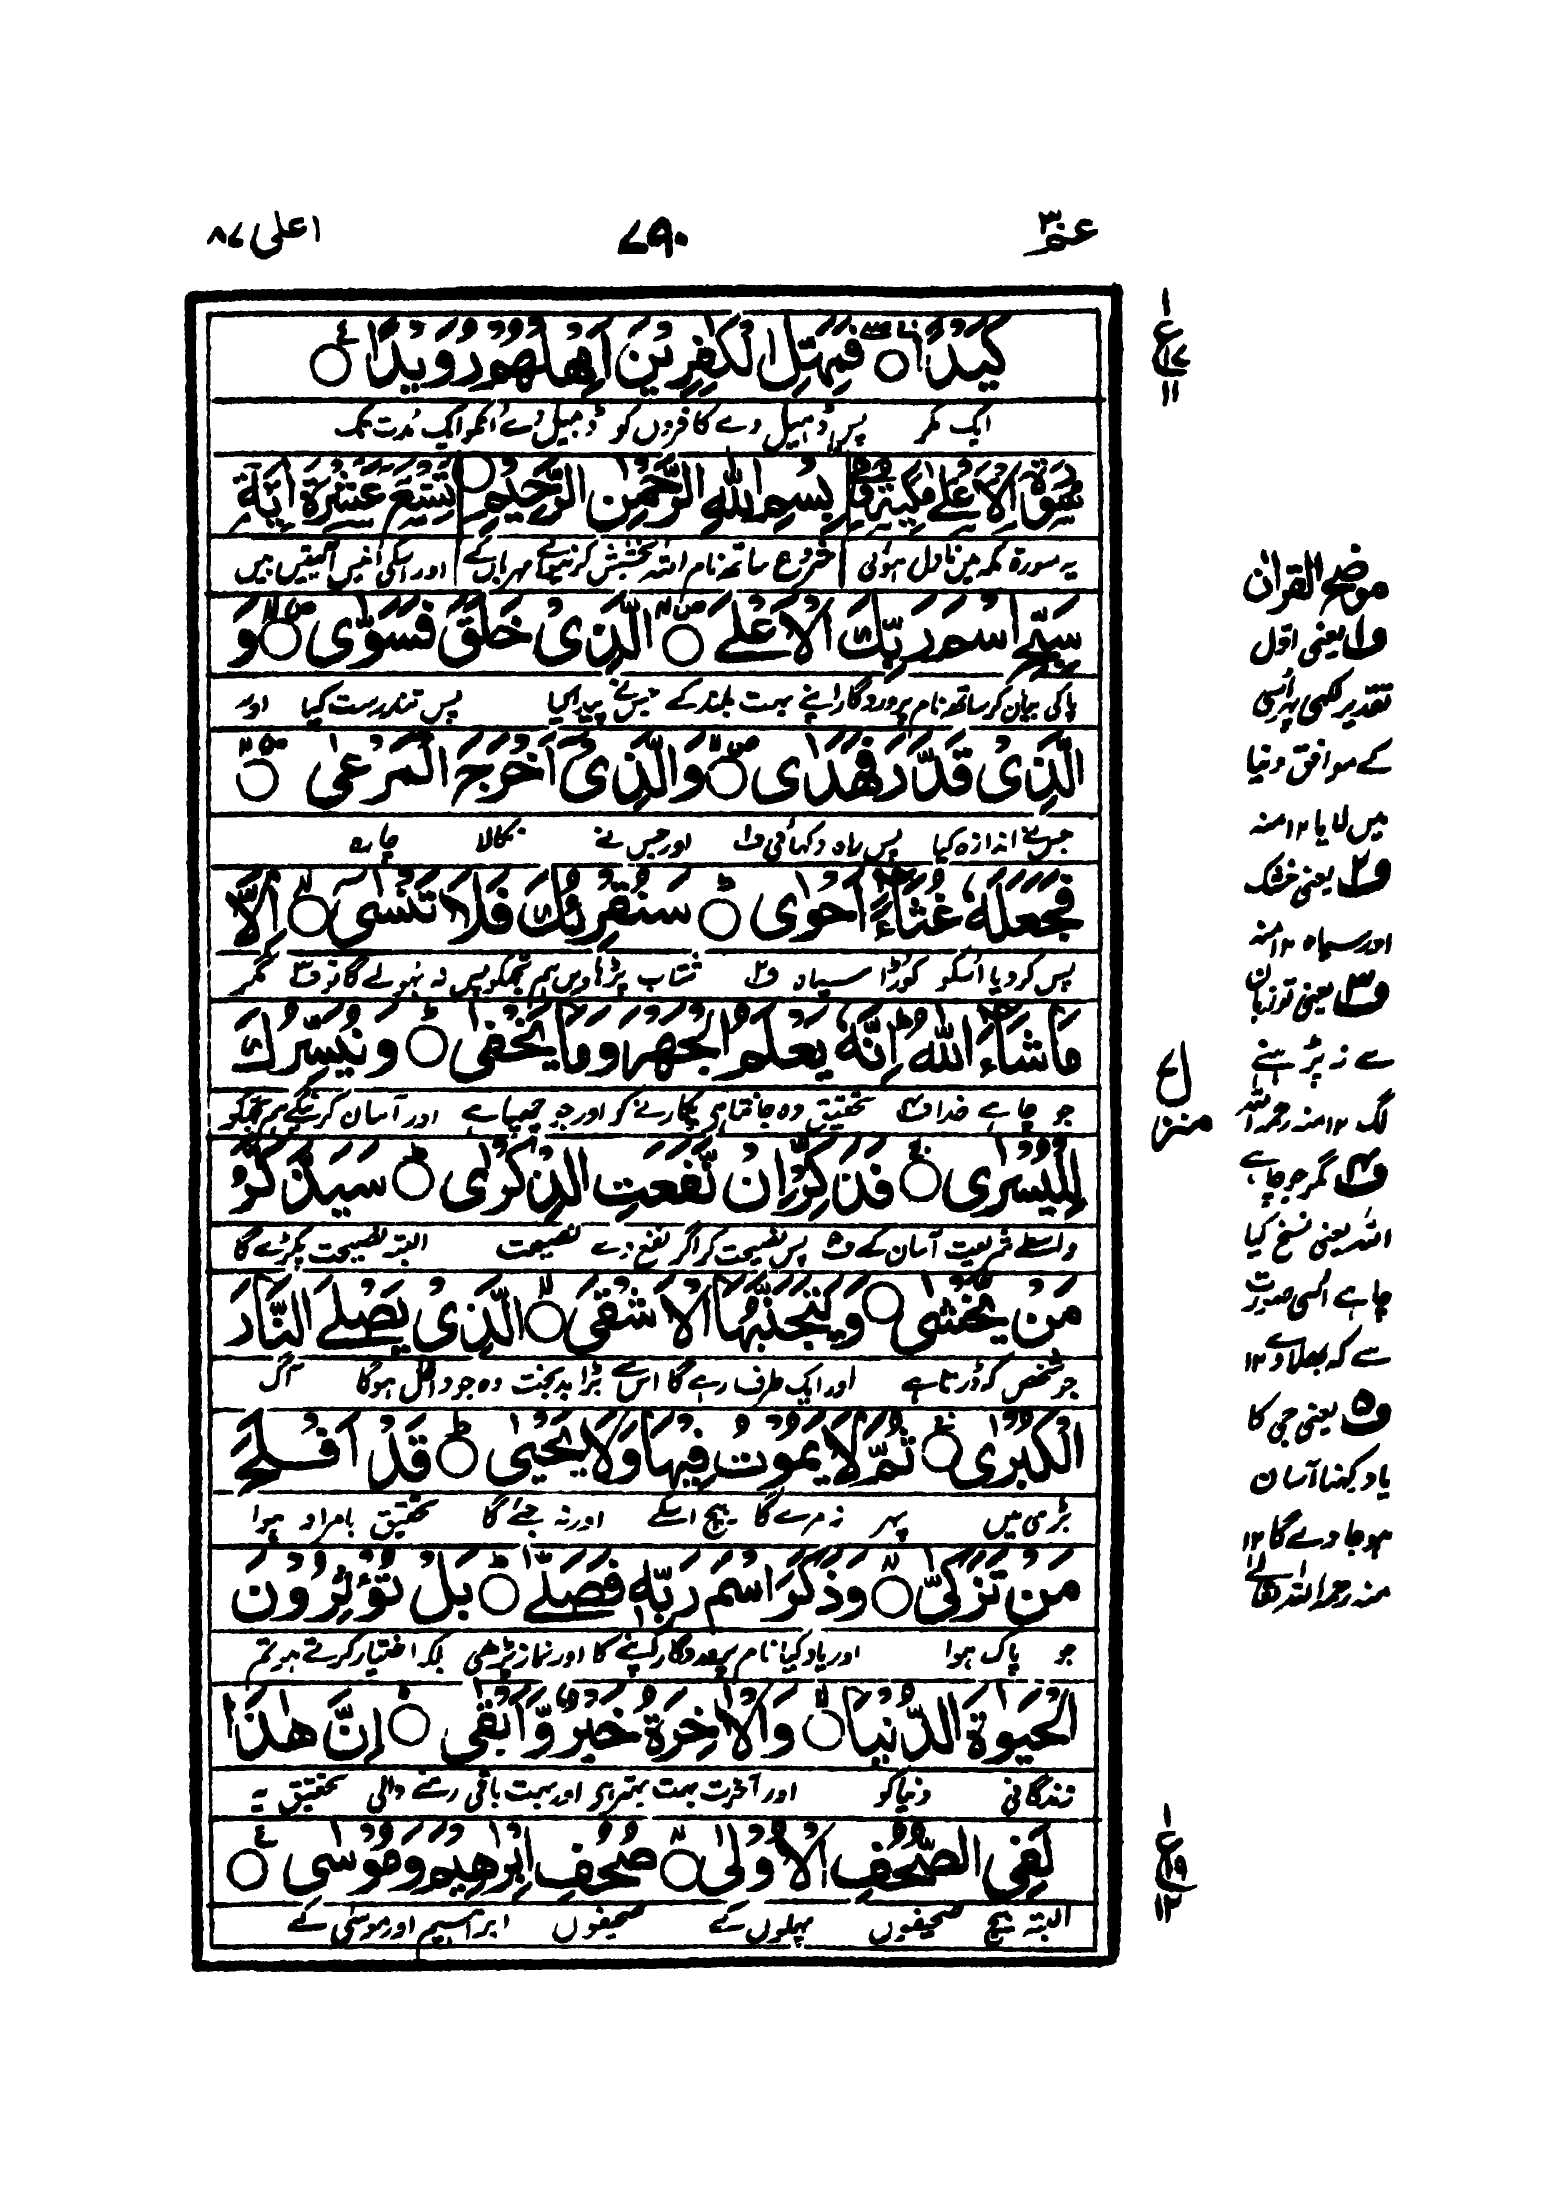 عم ٣٠
٧٩٠
اعلی ٨٧
كَيْدًا ۝ فَمَهِّلِ الْكٰفِرِيْنَ اَمْهِلْهُمْ رُوَيْدًا ۝
ایک مکر پس ڈھیل دے کافروں کو ڈھیل دے انکو ایک مدت تک
سُوْرَةُ الْاَعْلٰى مَكِّيَّةٌ وَّ بِسْمِ اللّٰهِ الرَّحْمٰنِ الرَّحِيْمِ ۝ تِسْعَ عَشْرَةَ اٰيَةً
یہ سورۃ مکہ میں نازل ہوئی شروع ساتھ نام اللہ بخشش کرنیوالے مہربان کے اور اسکی انیس آئیتیں ہیں
سَبِّحِ اسْمَ رَبِّكَ الْاَعْلَى ۝ الَّذِىْ خَلَقَ فَسَوّٰى ۝ وَ
پاکی بیان کر ساتھ نام پروردگار اپنے بہت بلند کے جس نے پیدا کیا پس تندرست کیا اور
الَّذِىْ قَدَّرَ فَهَدٰى ۝ وَالَّذِىْٓ اَخْرَجَ الْمَرْعٰى ۝
جس نے اندازہ کیا پس راہ دکھائی ف١ اور جس نے نکالا چارہ
فَجَعَلَهٗ غُثَآءً اَحْوٰى ۝ سَنُقْرِئُكَ فَلَا تَنْسٰٓى ۝ اِلَّا
پس کر دیا اسکو کوڑا سیاہ ف٢ شتاب پڑھاویں ہم تجھکو پس نہ بھولے گا تو ف٣ مگر
مَا شَآءَ اللّٰهُ اِنَّهٗ يَعْلَمُ الْجَهْرَ وَمَا يَخْفٰى ۝ وَنُيَسِّرُكَ
جو چاہے خدا ف٤ تحقیق وہ جانتا ہے پکارنے کو اور جو چھپا ہے اور آسان کرینگے ہم تجھکو
لِلْيُسْرٰى ۝ فَذَكِّرْ اِنْ نَّفَعَتِ الذِّكْرٰى ۝ سَيَذَّكَّرُ
واسطے شریعت آسان کے ف٥ پس نصیحت کر اگر نفع دے نصیحت البتہ نصیحت پکڑے گا
مَنْ يَّخْشٰى ۝ وَيَتَجَنَّبُهَا الْاَشْقَى ۝ الَّذِىْ يَصْلَى النَّارَ
جو شخص کہ ڈرتا ہے اور ایک طرف رہے گا اس سے بڑا بدبخت وہ جو داخل ہوگا آگ
الْكُبْرٰى ۝ ثُمَّ لَا يَمُوْتُ فِيْهَا وَلَا يَحْيٰى ۝ قَدْ اَفْلَحَ
بڑی میں پھر نہ مرے گا بیچ اسکے اور نہ جئے گا تحقیق بامراد ہوا
مَنْ تَزَكّٰى ۝ وَذَكَرَ اسْمَ رَبِّهٖ فَصَلّٰى ۝ بَلْ تُؤْثِرُوْنَ
جو پاک ہوا اور یاد کیا نام پروردگار اپنے کا اور نماز پڑھی بلکہ اختیار کرتے ہو تم
الْحَيٰوةَ الدُّنْيَا ۝ وَالْاٰخِرَةُ خَيْرٌ وَّاَبْقٰى ۝ اِنَّ هٰذَا
زندگانی دنیا کو اور آخرت بہت بہتر ہے اور بہت باقی رہنے والی تحقیق یہ
لَفِى الصُّحُفِ الْاُوْلٰى ۝ صُحُفِ اِبْرٰهِيْمَ وَمُوْسٰى ۝
البتہ بیچ صحیفوں پہلوں کے صحیفوں ابراہیم اور موسیٰ کے
١
ع
١٧
١١
منزل
١
ع
١٩
١٢
موضح القران
ف١ یعنی اول
تقدیر لکھی پھر اسی
کے موافق دنیا
میں لایا ١٢ منہ
ف٢ یعنی خشک
اور سیاہ ١٢ منہ
ف٣ یعنی تو زبان
سے نہ پڑہنے
لگ ١٢ منہ رحمہ اللہ
ف٤ مگر جو چاہے
اللہ یعنی نسخ کیا
چاہے اسی صورت
سے کہ بھلا دے ١٢
ف٥ یعنی وحی کا
یاد رکھنا آسان
ہو جاوے گا ١٢
منہ رحمہ اللہ تعالیٰ